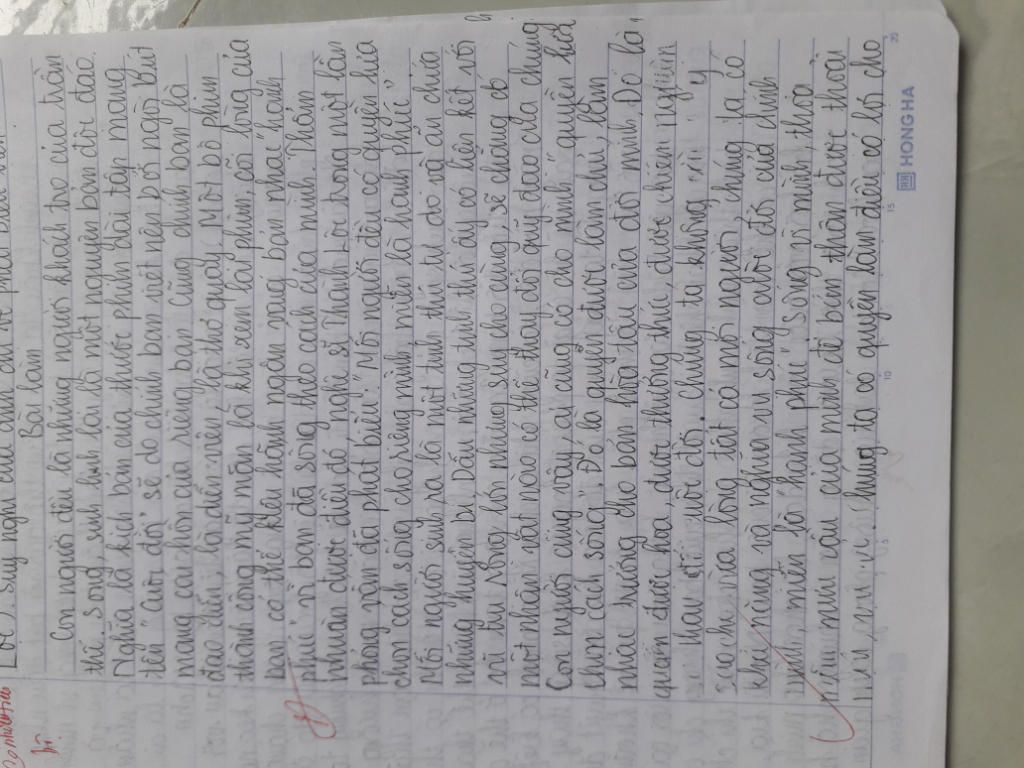 Lộc), suy nghĩ của anh chị về phát biểu trên
Bài làm
Con người đều là những người khách trọ của trần
thế, song sinh linh lại là một nguyên bản độc đáo.
Nghĩa là kịch bản của thước phim dài tận mang
tên "cuộc đời" sẽ do chính bạn viết nên bởi ngòi bút
mang cái hồn của riêng bạn. Cũng chính bạn là
đạo diễn, là diễn viên, là thợ quay. Một bộ phim
thành công mỹ mãn là khi xem lại phim cõi lòng của
bạn có thể kiêu hãnh ngân vang bản nhạc "hạnh
phúc" vì bạn đã sống theo cách của mình. Thấm
nhuần được điều đó nghệ sĩ Thành Lộc trong một lần
phỏng vấn đã phát biểu: "Mỗi người đều có quyền lựa
chọn cách sống cho riêng mình miễn là hạnh phúc"
Mỗi người sinh ra là một tinh thú tự do ẩn chứa
những huyền bí. Dẫu những tinh thú ấy có liên kết với
vũ trụ rộng lớn nhưng suy cho cùng sẽ chẳng có
một nhân vật nào có thể thay đổi quỹ đạo của chúng
Con người cũng vậy, ai cũng có cho mình "quyền lựa
chọn cách sống". Đó là quyền được làm chủ, làm
nhạc trưởng cho bản hòa tấu của đời mình. Đó là
quyền được họa, được thưởng thức, được chiêm nghiệm
cuộc đời. chúng ta không
của họ vừa lòng tất cả mọi người, chúng ta có
khả năng và nghĩa vụ sống cuộc đời của chính
mình miễn là "hạnh phúc", sống vì mình, thỏa
mãn nhu cầu của mình để bản thân được thoải
mái, vui vẻ. Chúng ta có quyền làm điều có lợi cho
HONG HA
5
10
15
20